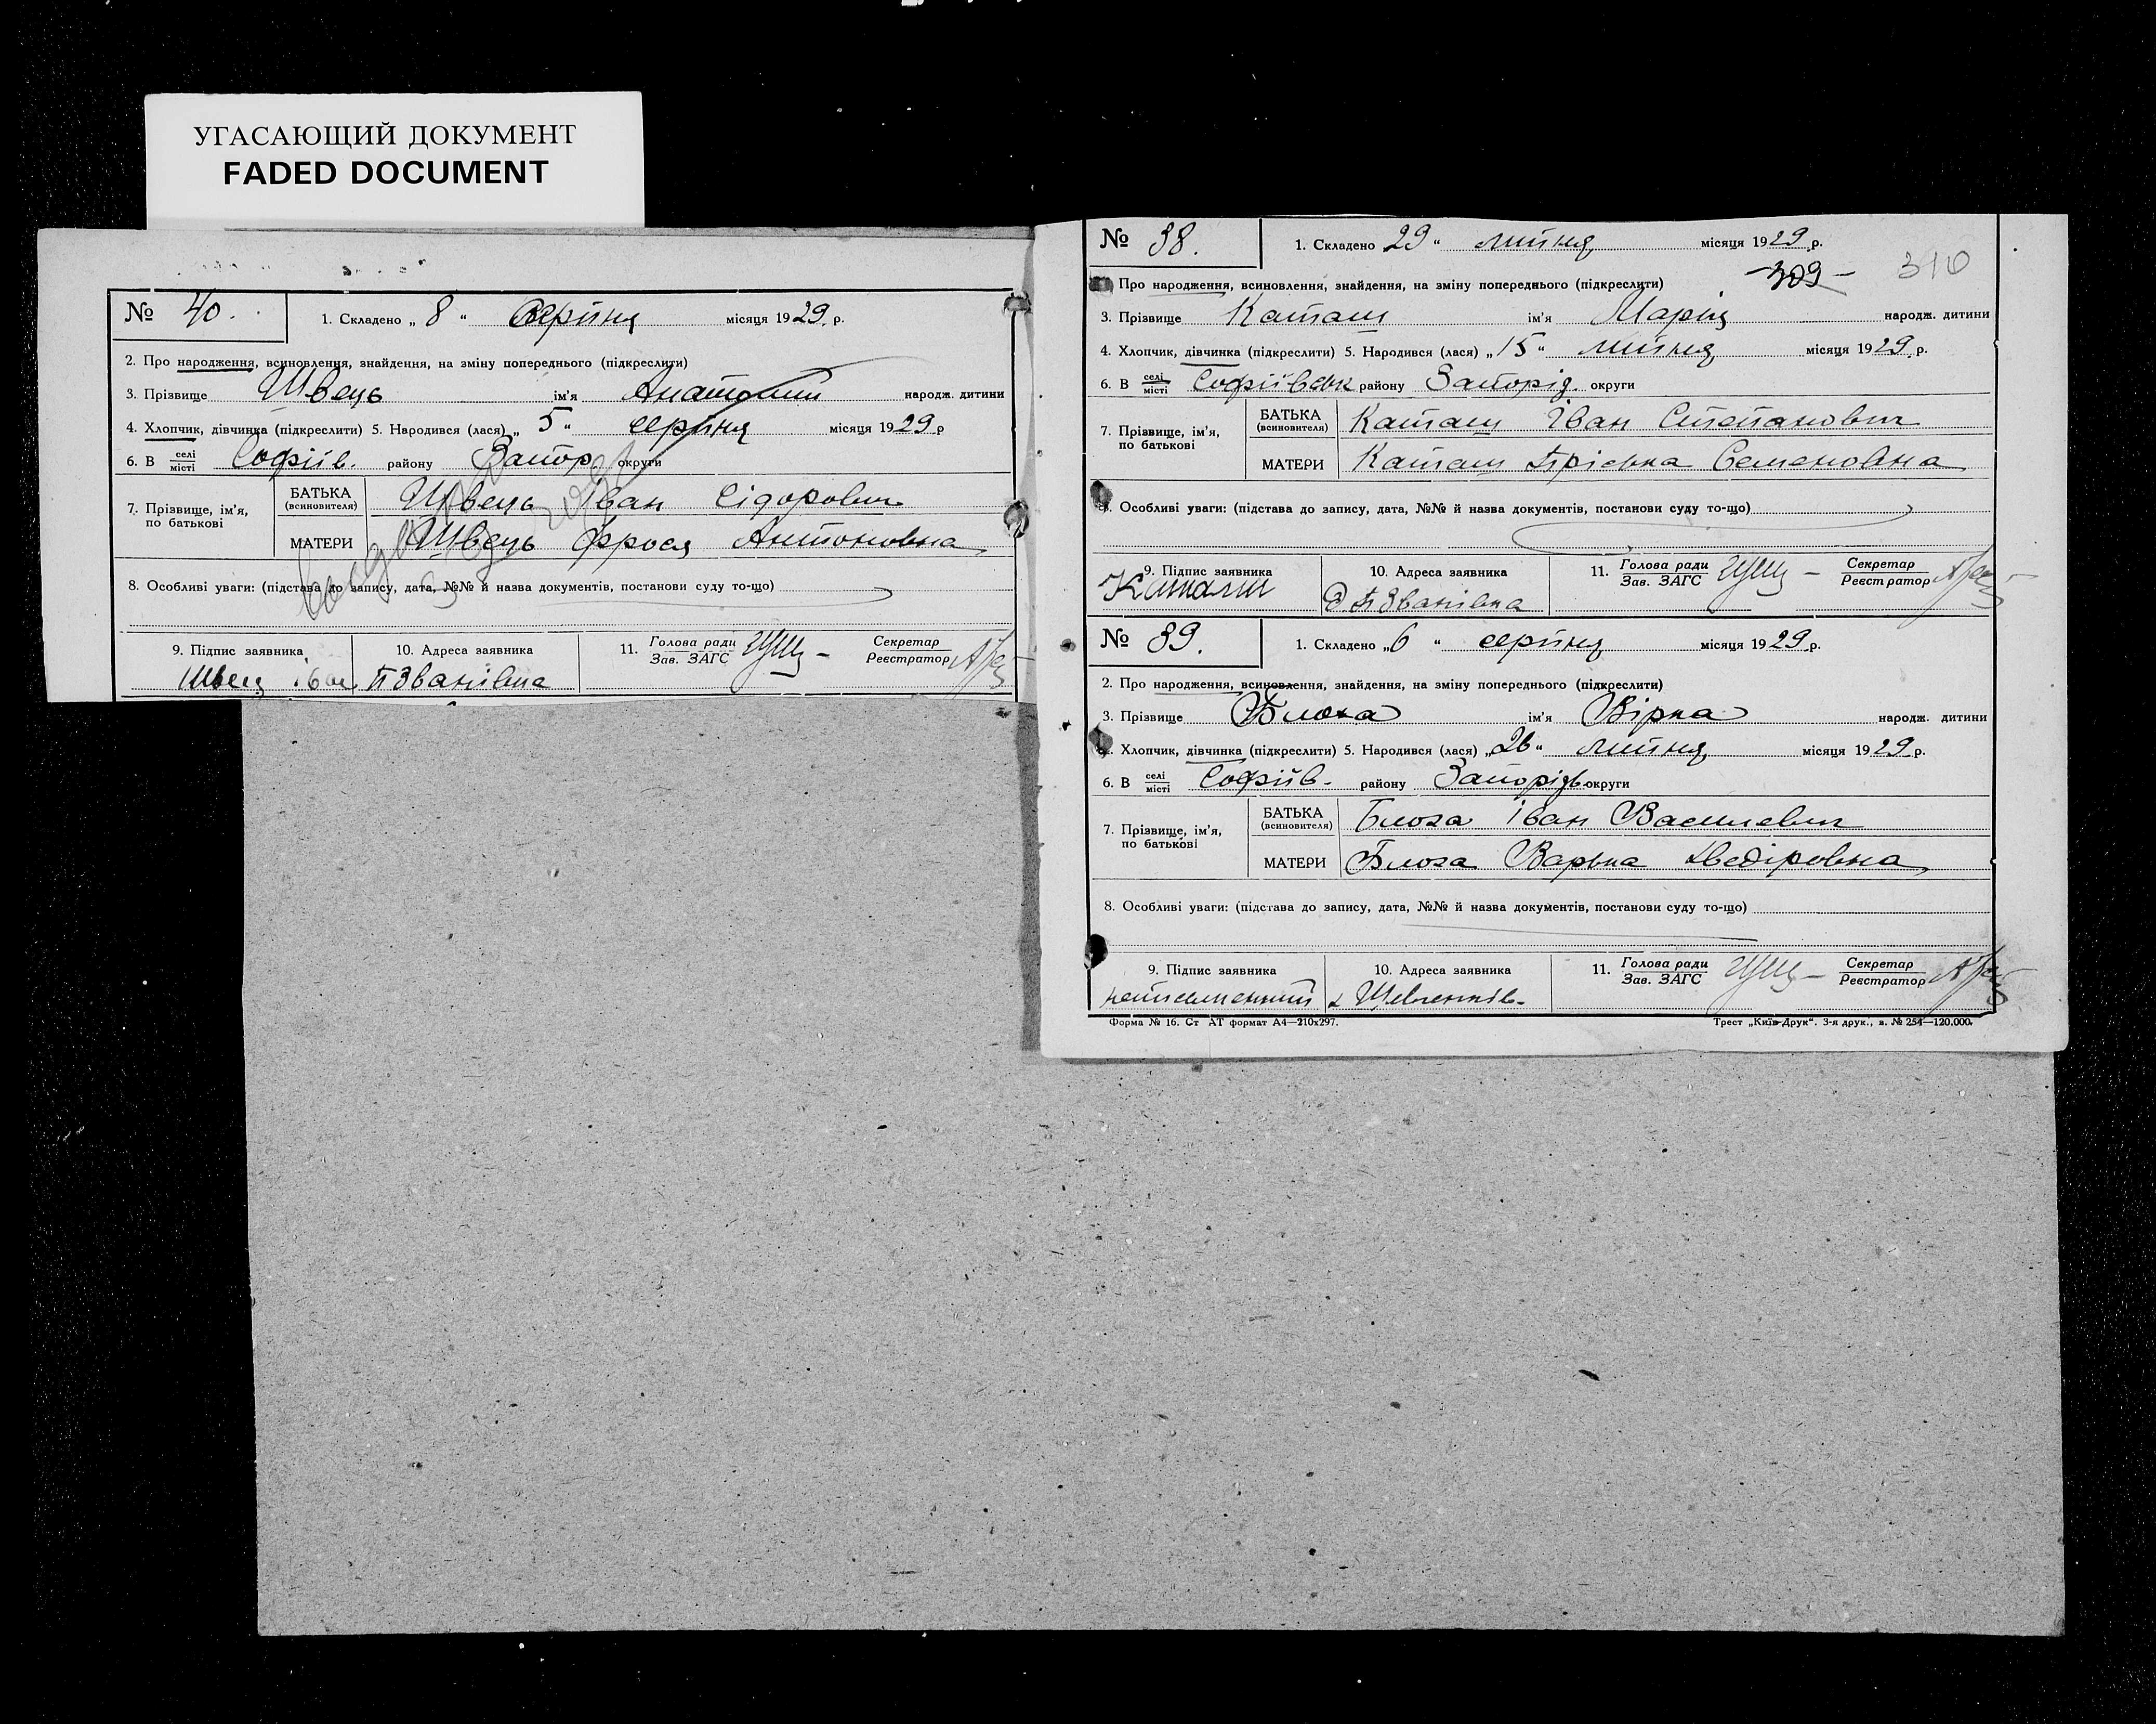 УГАСАЮЩИЙ ДОКУМЕНТ
FADED DOCUMENT
№ 40.
1. Складено „ 8 “ серпня місяця 1929 р.
2. Про народження, всиновлення, знайдення, на зміну попереднього (підкреслити)
3. Прізвище Швець ім'я Анатолий народж. дитини
4. Хлопчик, дівчинка (підкреслити) 5. Народився (лася) „ 5 “ серпня місяця 1929 р
6. В селі місті Софіїв. району Запор. округи
7. Прізвище, ім'я, по батькові
БАТЬКА (всиновителя) Швець Іван Сідорович
МАТЕРИ Швець Фрося Антоновна
8. Особливі уваги: (підстава до запису, дата, №№ й назва документів, постанови суду то-що)
9. Підпис заявника
10. Адреса заявника
11. Голова ради Зав. ЗАГС
Секретар Реєстратор
Швец П Званівка
№ 38.
1. Складено 29 “ липня місяця 1929 р.
309 — 310
Про народження, всиновлення, знайдення, на зміну попереднього (підкреслити)
3. Прізвище Каташ ім'я Марія народж. дитини
4. Хлопчик, дівчинка (підкреслити) 5. Народився (лася) „ 15 “ липня місяця 1929 р.
6. В селі місті Софіївськ району Запоріз. округи
7. Прізвище, ім'я, по батькові
БАТЬКА (всиновителя) Каташ Іван Степанович
МАТЕРИ Каташ Семеновна
Особливі уваги: (підстава до запису, дата, №№ й назва документів, постанови суду то-що)
9. Підпис заявника
10. Адреса заявника
11. Голова ради Зав. ЗАГС
Секретар Реєстратор
Званівка
№ 39.
1. Складено „ 6 “ серпня місяця 1929 р.
2. Про народження, всиновлення, знайдення, на зміну попереднього (підкреслити)
3. Прізвище Блоха ім'я Вірка народж. дитини
Хлопчик, дівчинка (підкреслити) 5. Народився (лася) „ 26 “ липня місяця 1929 р.
6. В селі місті Софіїв. району Запорізь. округи
7. Прізвище, ім'я, по батькові
БАТЬКА (всиновителя) Блоха Іван Василевич
МАТЕРИ Блоха Варька
8. Особливі уваги: (підстава до запису, дата, №№ й назва документів, постанови суду то-що)
9. Підпис заявника
10. Адреса заявника
11. Голова ради Зав. ЗАГС
Секретар Реєстратор
неписменний х Шевченків.
Форма № 16. Ст АТ формат А4—210х297.
Трест „Київ-Друк“. 3-я друк., в. № 254—120.000.